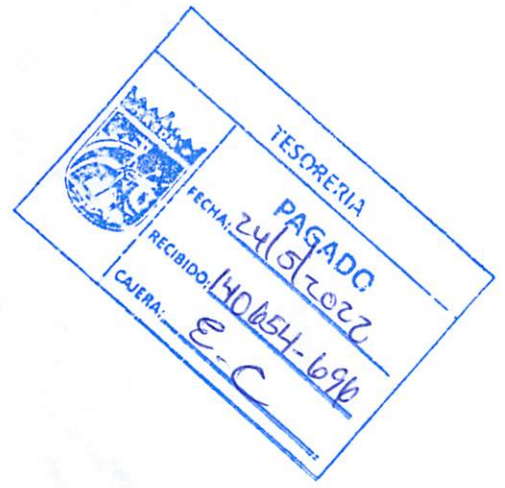 TESORERIA
PAGADO
FECHA: 24/5/2022
RECIBIDO: 140654-696
CAJERA: E-C